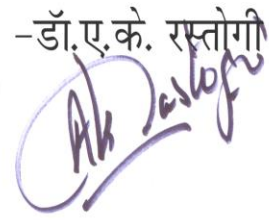 –डॉ.ए.के. रस्तोगी
AK Rastogi